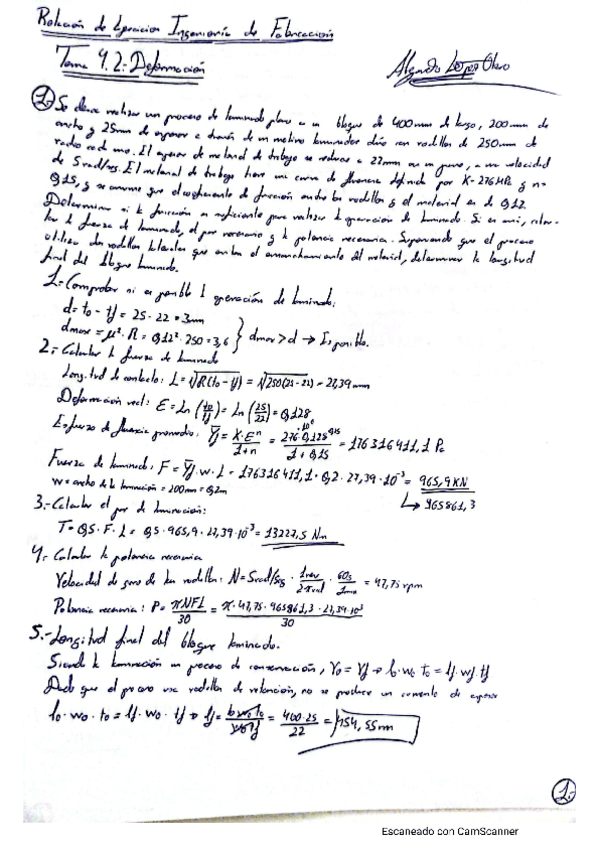 Relación de Ejercicios Ingeniería de Fabricación
Tema 4.2: Deformación
Alejandro López Otero
1. Se desea realizar un proceso de laminado plano a un bloque de 400mm de largo, 200mm de
ancho y 25mm de espesor a través de un molino laminador dúo con rodillos de 250mm de
radio cada uno. El espesor de material de trabajo se reduce a 22mm en un paso, a una velocidad
de 5rad/seg. El material de trabajo tiene una curva de fluencia definida por K=276MPa y n=
0,15, y se asume que el coeficiente de fricción entre los rodillos y el material es de 0,12.
Determinar si la fricción es suficiente para realizar la operación de laminado. Si es así, calcu-
lar la fuerza de laminado, el par necesario y la potencia necesaria. Suponiendo que el proceso
utiliza dos rodillos que evitan el ensanchamiento del material, determinar la longitud
final del bloque laminado.
1.- Comprobar si es posible la operación de laminado:
d = to - tf = 25 - 22 = 3mm
dmax = μ² · R = 0,12² · 250 = 3,6 } dmax > d → Es posible.
2.- Calcular la fuerza de laminado
Longitud de contacto: L = √R(to - tf) = √250(25-22) = 27,39mm
Deformación real: ε = Ln (to/tf) = Ln (25/22) = 0,128
Esfuerzo de fluencia promedio: Ȳf = K·εⁿ/1+n = 276·10⁶·0,128^0,15/1+0,15 = 176316411,1 Pa
Fuerza de laminado: F = Ȳf · w · L = 176316411,1 · 0,2 · 27,39·10⁻³ = 965,9 KN
w = ancho de la laminación = 200mm = 0,2m
↳ 965861,3
3.- Calcular el par de laminación:
T = 0,5 · F · L = 0,5 · 965,9 · 27,39·10⁻³ = 13227,5 Nm
4.- Calcular la potencia necesaria
Velocidad de giro de los rodillos: N = 5rad/seg · 1rev/2πrad · 60s/1min = 47,75 rpm
Potencia necesaria: P = πNFL/30 = π·47,75·965861,3·27,39·10⁻³/30
5.- Longitud final del bloque laminado.
Siendo la laminación un proceso de conservación, Vo = Vf → lo·wo·to = lf·wf·tf
Dado que el proceso usa rodillos de retención, no se produce un aumento de espesor
lo·wo·to = lf·wo·tf → lf = lo·wo·to/wo·tf = 400·25/22 = 454,55mm
1.
Escaneado con CamScanner